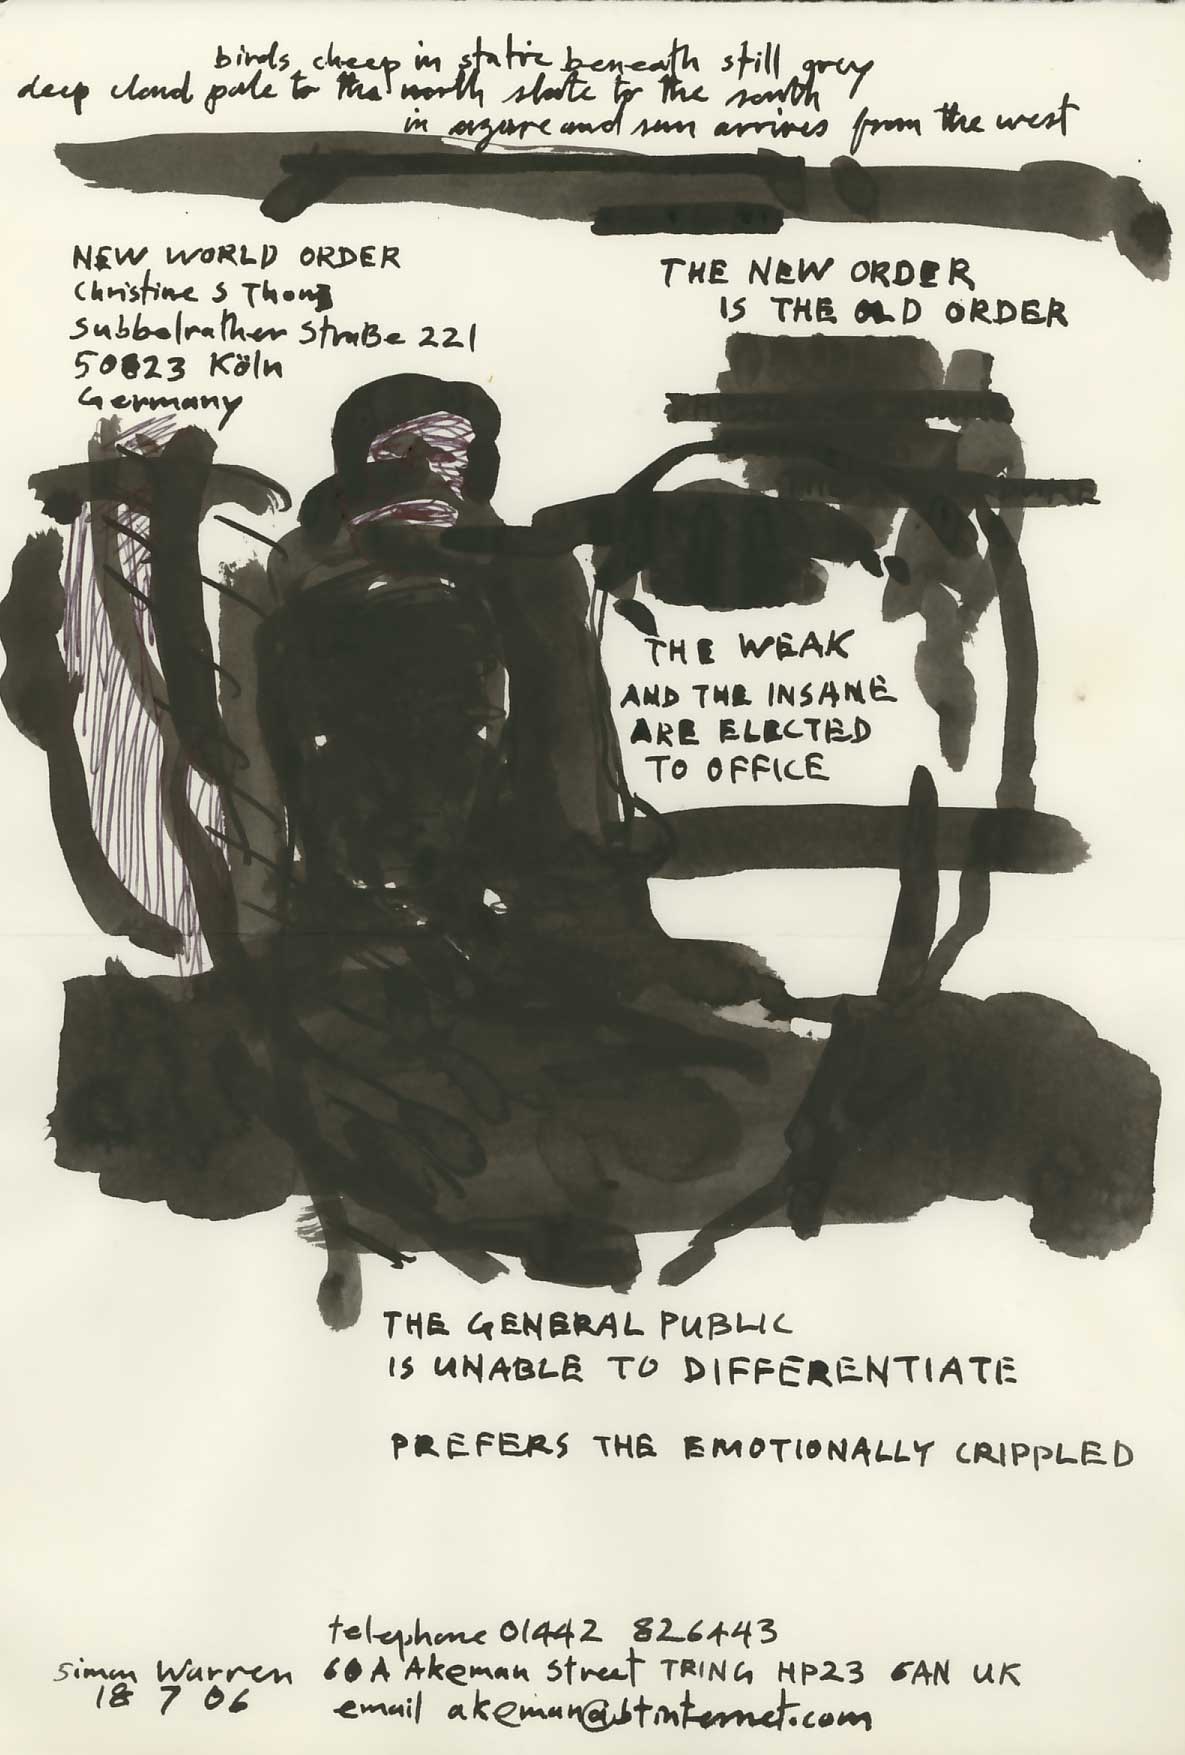 birds cheep in static beneath still grey
deep cloud pale to the north slate to the south
in azure and sun arrives from the west
NEW WORLD ORDER
Christine S Thom
Subbelrather Straße 221
50823 Köln
Germany
THE NEW ORDER
IS THE OLD ORDER
THE WEAK
AND THE INSANE
ARE ELECTED
TO OFFICE
THE GENERAL PUBLIC
IS UNABLE TO DIFFERENTIATE
PREFERS THE EMOTIONALLY CRIPPLED
telephone 01442 826443
simon Warren 60A Akeman Street TRING HP23 6AN UK
18 7 06 email akeman@btinternet.com